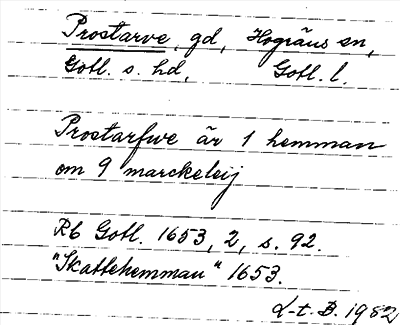 Prostarve, gd, Hogräns sn,
Gotl. s. hd, Gotl. l.
Prostarfwe är 1 hemman
om 9 marckeleij
Rb Gotl. 1653, 2, s. 92.
"Skattehemman" 1653.
L-t. B. 1982